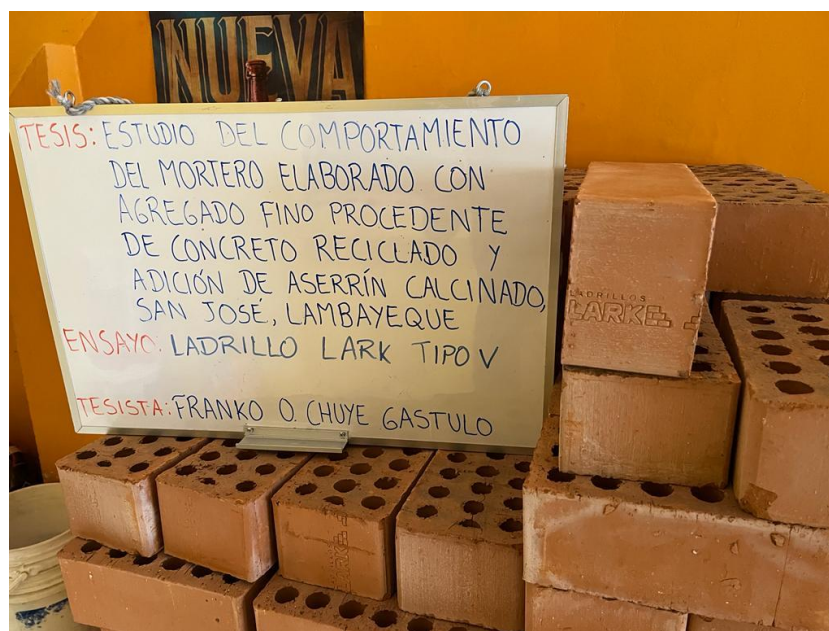 NUEVA
TESIS: ESTUDIO DEL COMPORTAMIENTO
DEL MORTERO ELABORADO CON
AGREGADO FINO PROCEDENTE
DE CONCRETO RECICLADO Y
ADICIÓN DE ASERRÍN CALCINADO,
SAN JOSÉ, LAMBAYEQUE
ENSAYO: LADRILLO LARK TIPO V
TESISTA: FRANKO O. CHUYE GASTULO
LADRILLOS
LARK
LARK